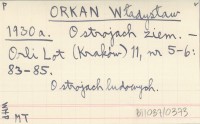 ORKAN Władysław
1930a. O strojach ziem. —
Orli Lot (Kraków) 11, nr 5-6:
83-85.
O strojach ludowych.
WHP
MT